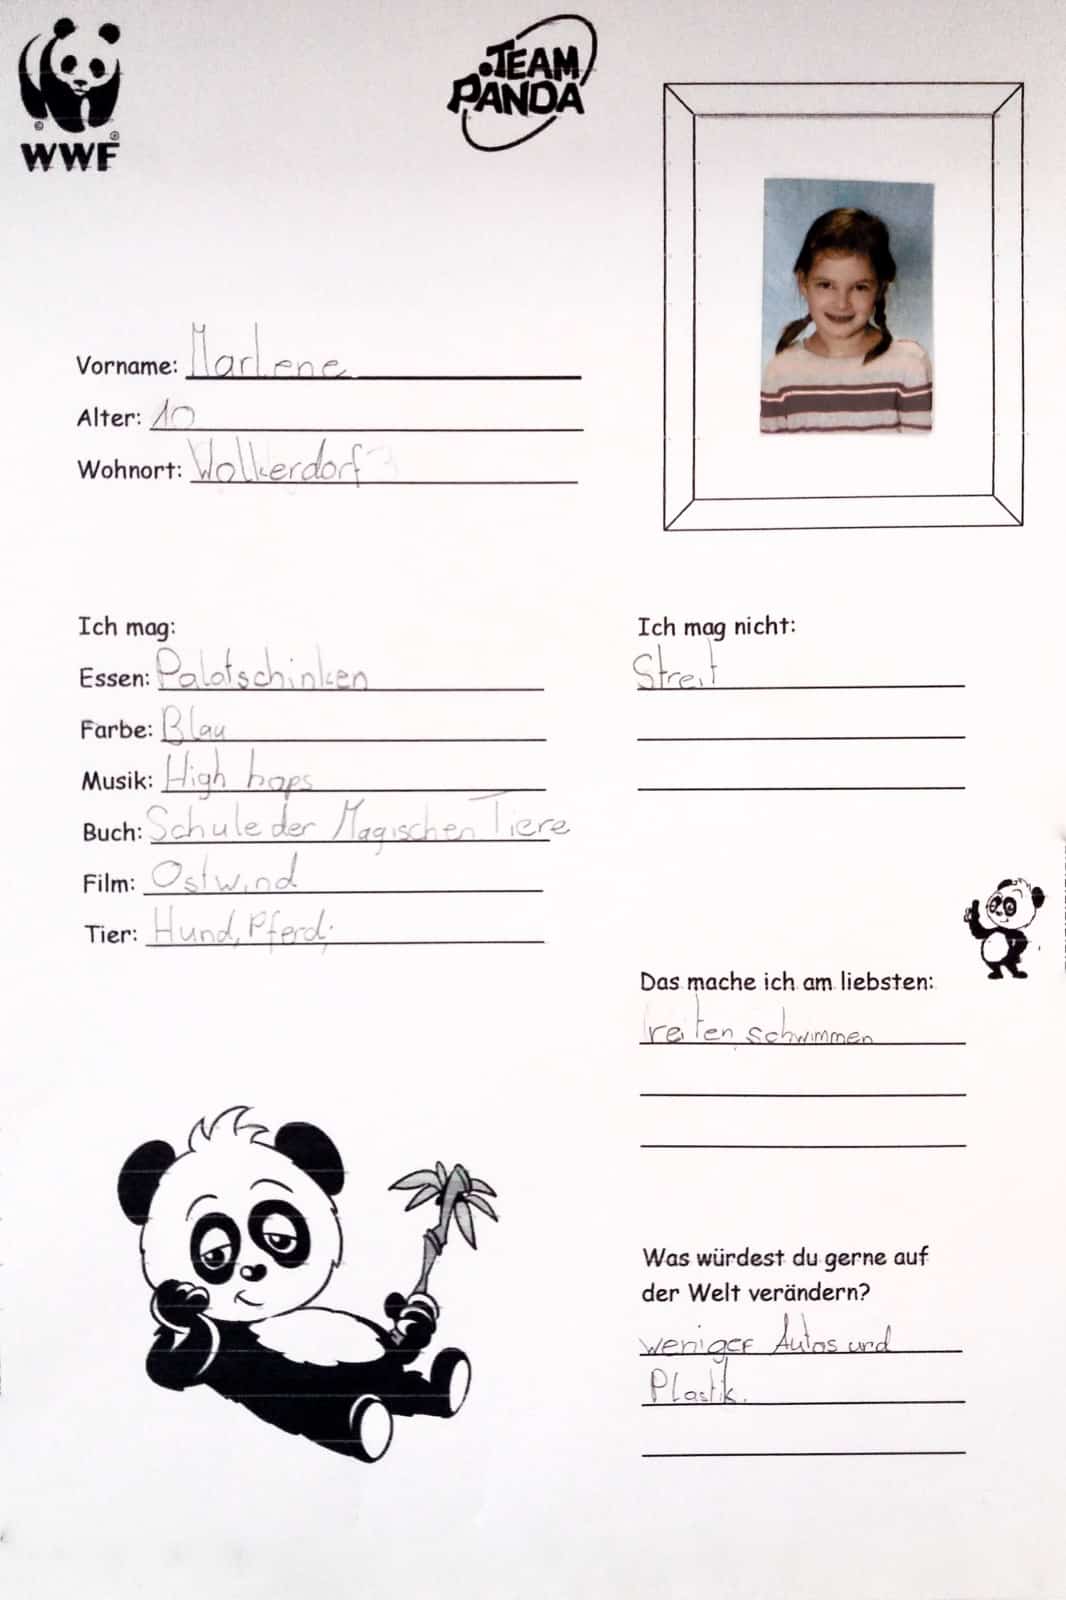 WWF
TEAM
PANDA
Vorname: Marlene
Alter: 10
Wohnort: Wolkersdorf
Ich mag:
Essen: Palotschinken
Farbe: Blau
Musik: High hops
Buch: Schule der Magischen Tiere
Film: Ostwind
Tier: Hund, Pferd;
Ich mag nicht:
Streit
Das mache ich am liebsten:
reiten, schwimmen
Was würdest du gerne auf
der Welt verändern?
weniger Autos und
Plastik.